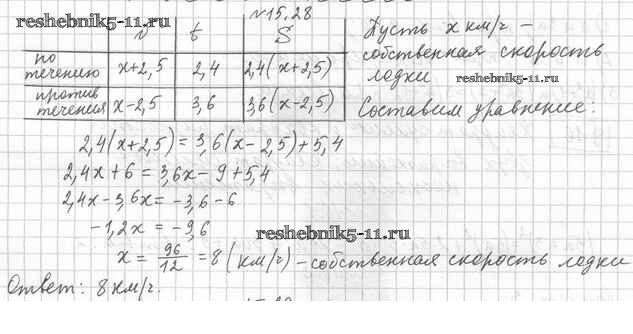 №15.28
reshebnik5-11.ru
v t S
по течению x+2,5 2,4 2,4(x+2,5)
против течения x-2,5 3,6 3,6(x-2,5)
Пусть x км/ч -
собственная скорость
лодки
reshebnik5-11.ru
Составим уравнение:
2,4(x+2,5)=3,6(x-2,5)+5,4
2,4x+6=3,6x-9+5,4
2,4x-3,6x=-3,6-6
-1,2x=-9,6
reshebnik5-11.ru
x=96/12=8(км/ч)-собственная скорость лодки
Ответ: 8 км/ч.